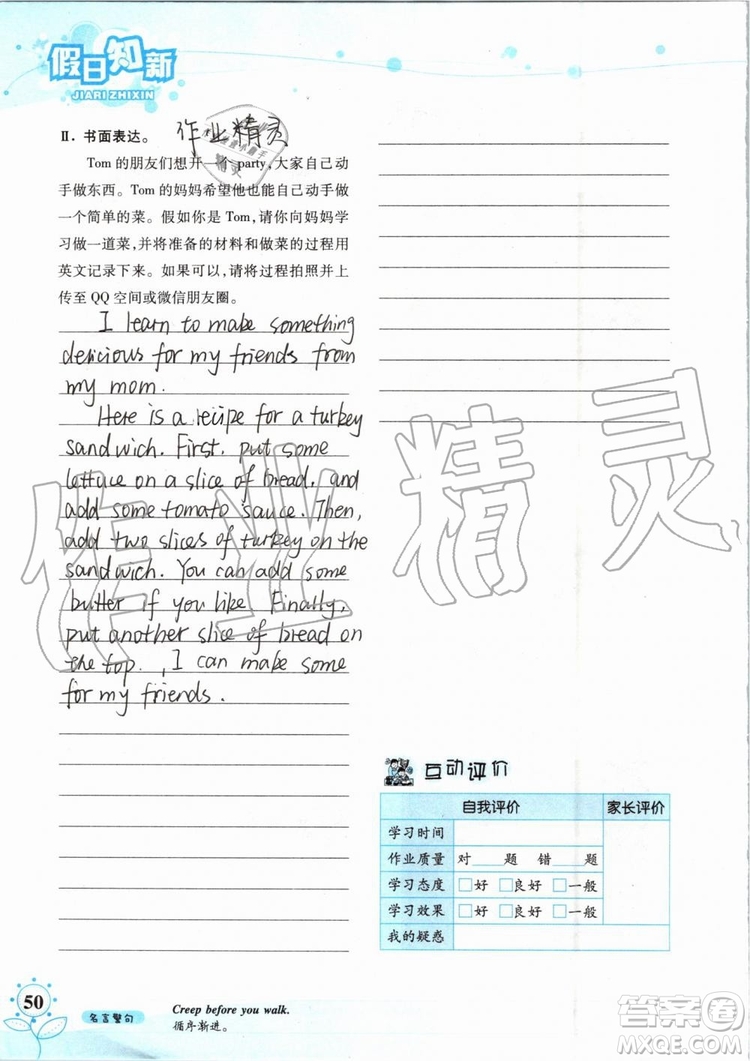 假日知新
JIARI ZHIXIN
II. 书面表达。
作业精灵
Tom 的朋友们想开一个 party，大家自己动
手做东西。Tom 的妈妈希望他也能自己动手做
一个简单的菜。假如你是 Tom，请你向妈妈学
习做一道菜，并将准备的材料和做菜的过程用
英文记录下来。如果可以，请将过程拍照并上
传至 QQ 空间或微信朋友圈。
I learn to make something
delicious for my friends from
my mom.
Here is a recipe for a turkey
sandwich. First, put some
lettuce on a slice of bread, and
add some tomato sauce. Then,
add two slices of turkey on the
sandwich. You can add some
butter if you like. Finally,
put another slice of bread on
the top. , I can make some
for my friends.
作业精灵
互动评价
自我评价 家长评价
学习时间
作业质量 对 题 错 题
学习态度 □好 □良好 □一般
学习效果 □好 □良好 □一般
我的疑惑
50
名言警句
Creep before you walk.
循序渐进。
答案圈
MXQE.COM